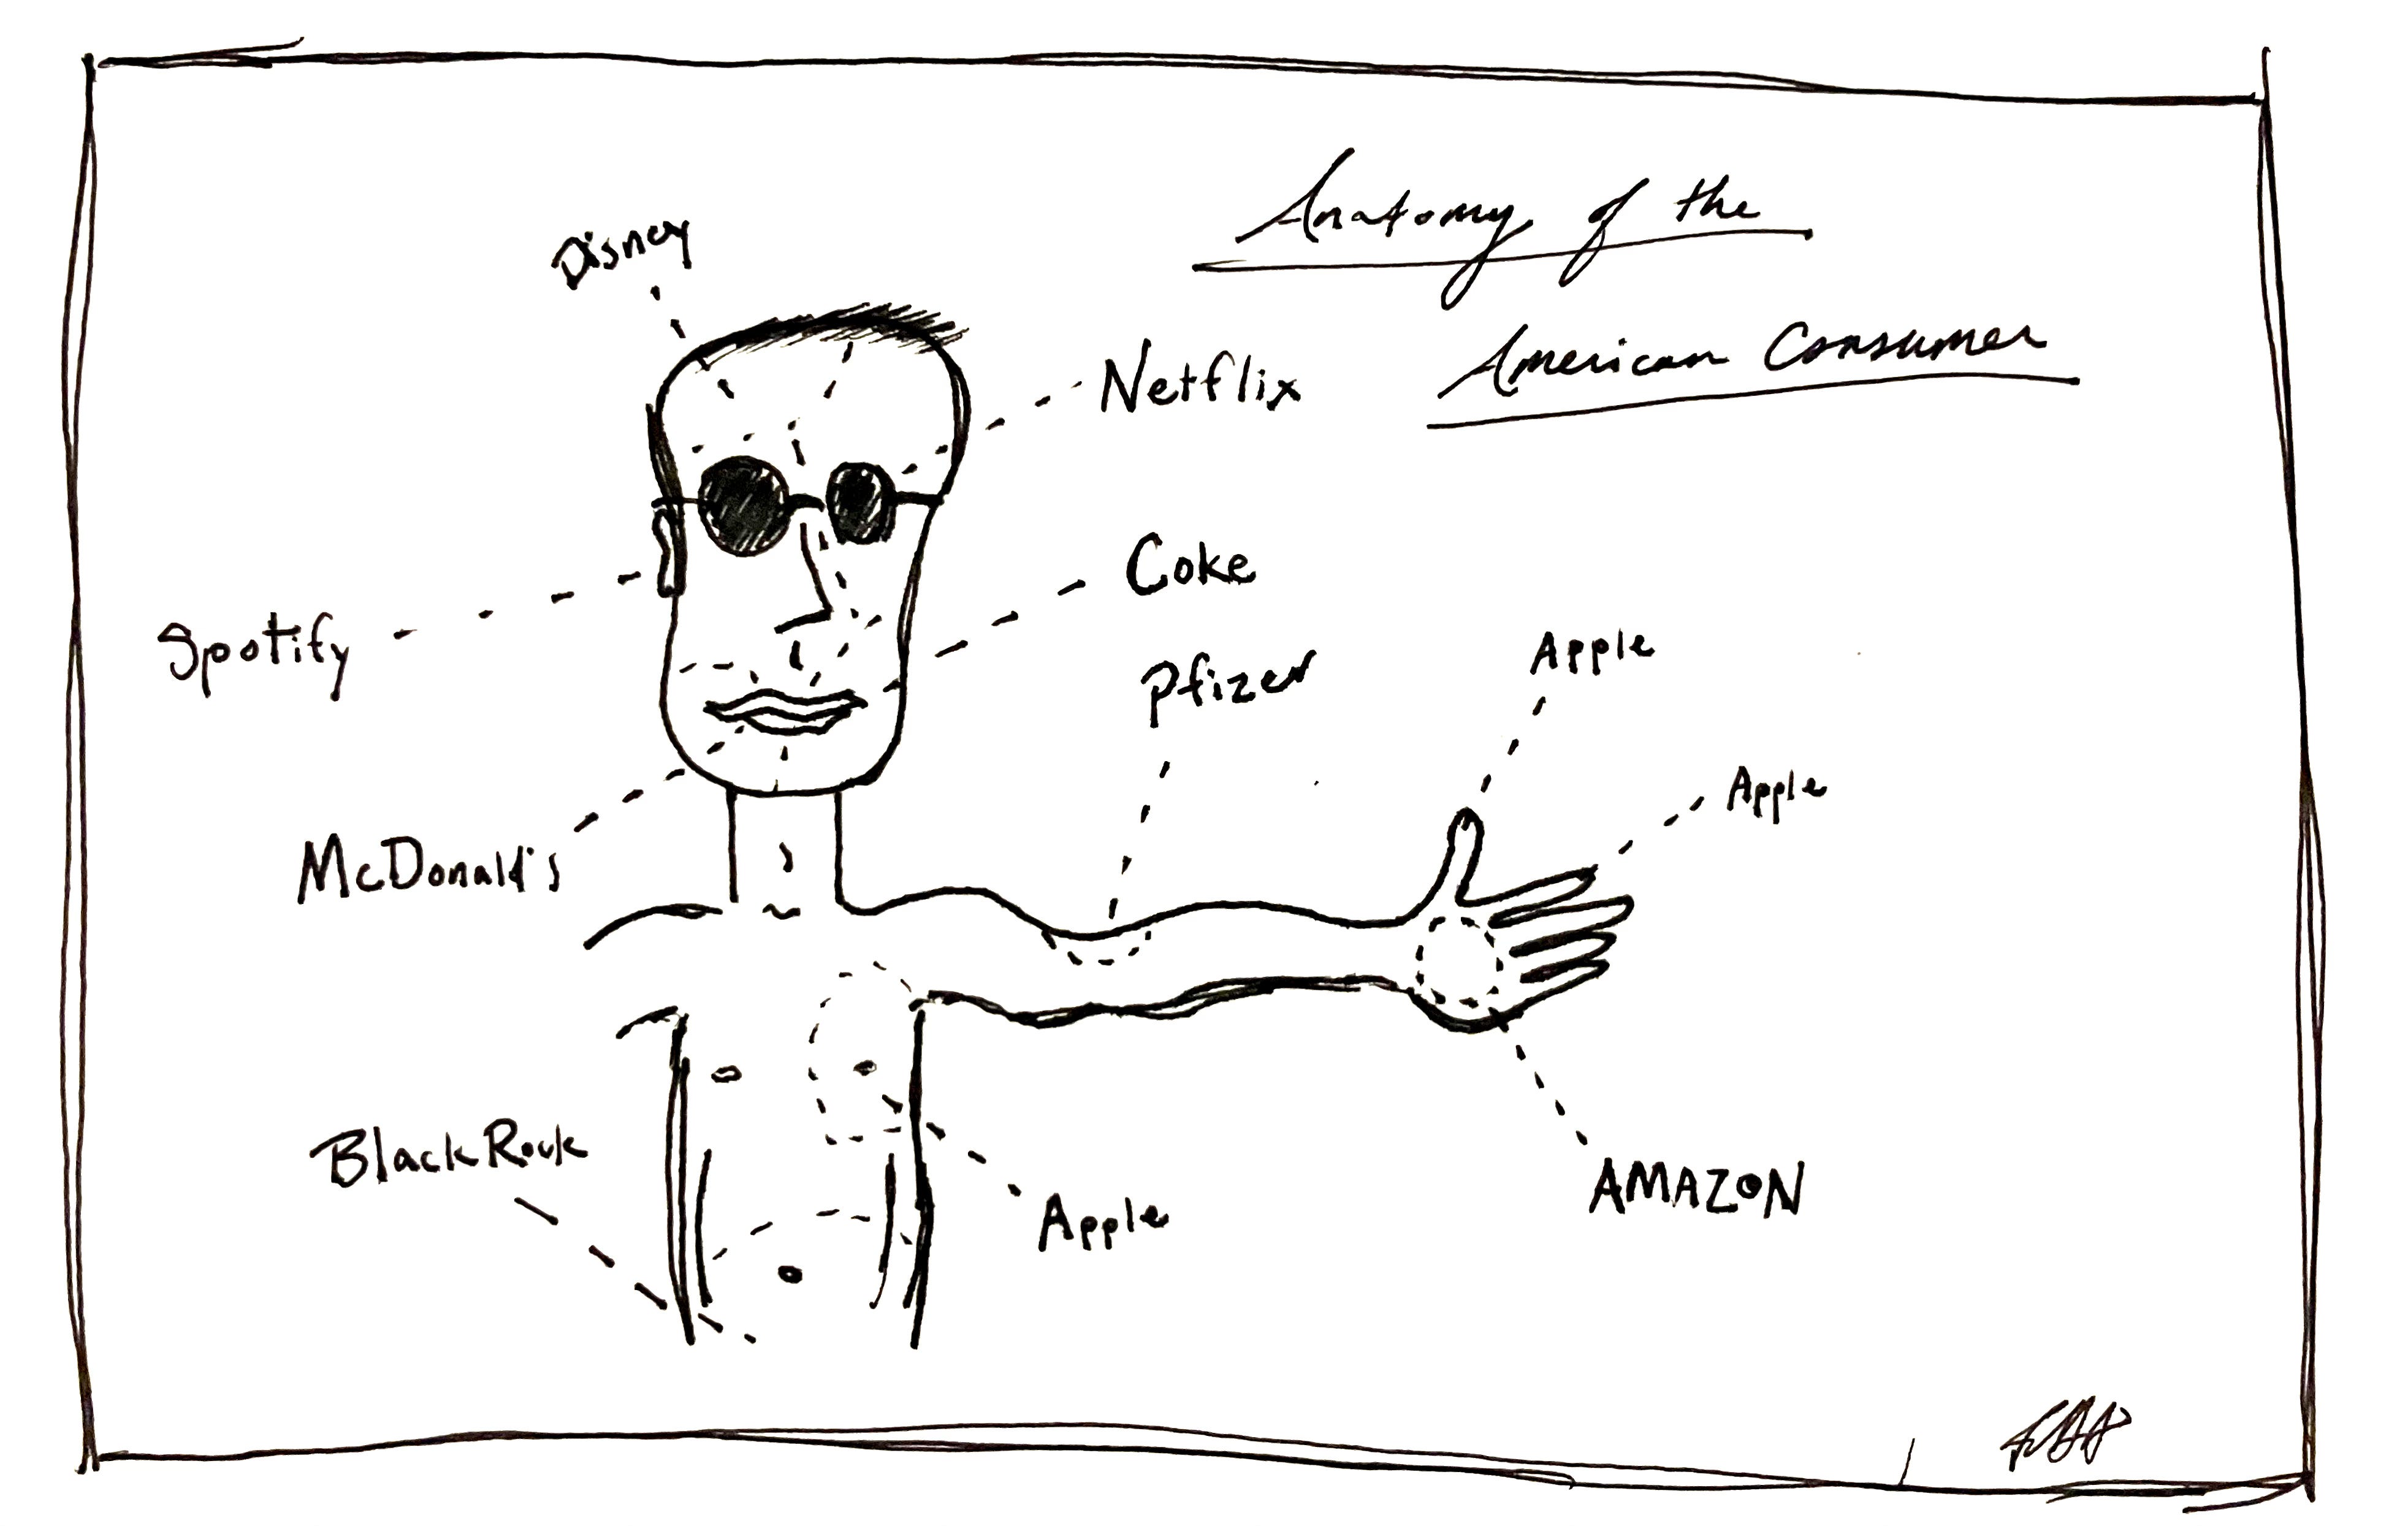 Anatomy of the
American Consumer
Disney
Netflix
Spotify
Coke
Pfizer
Apple
Apple
McDonald's
BlackRock
Apple
AMAZON